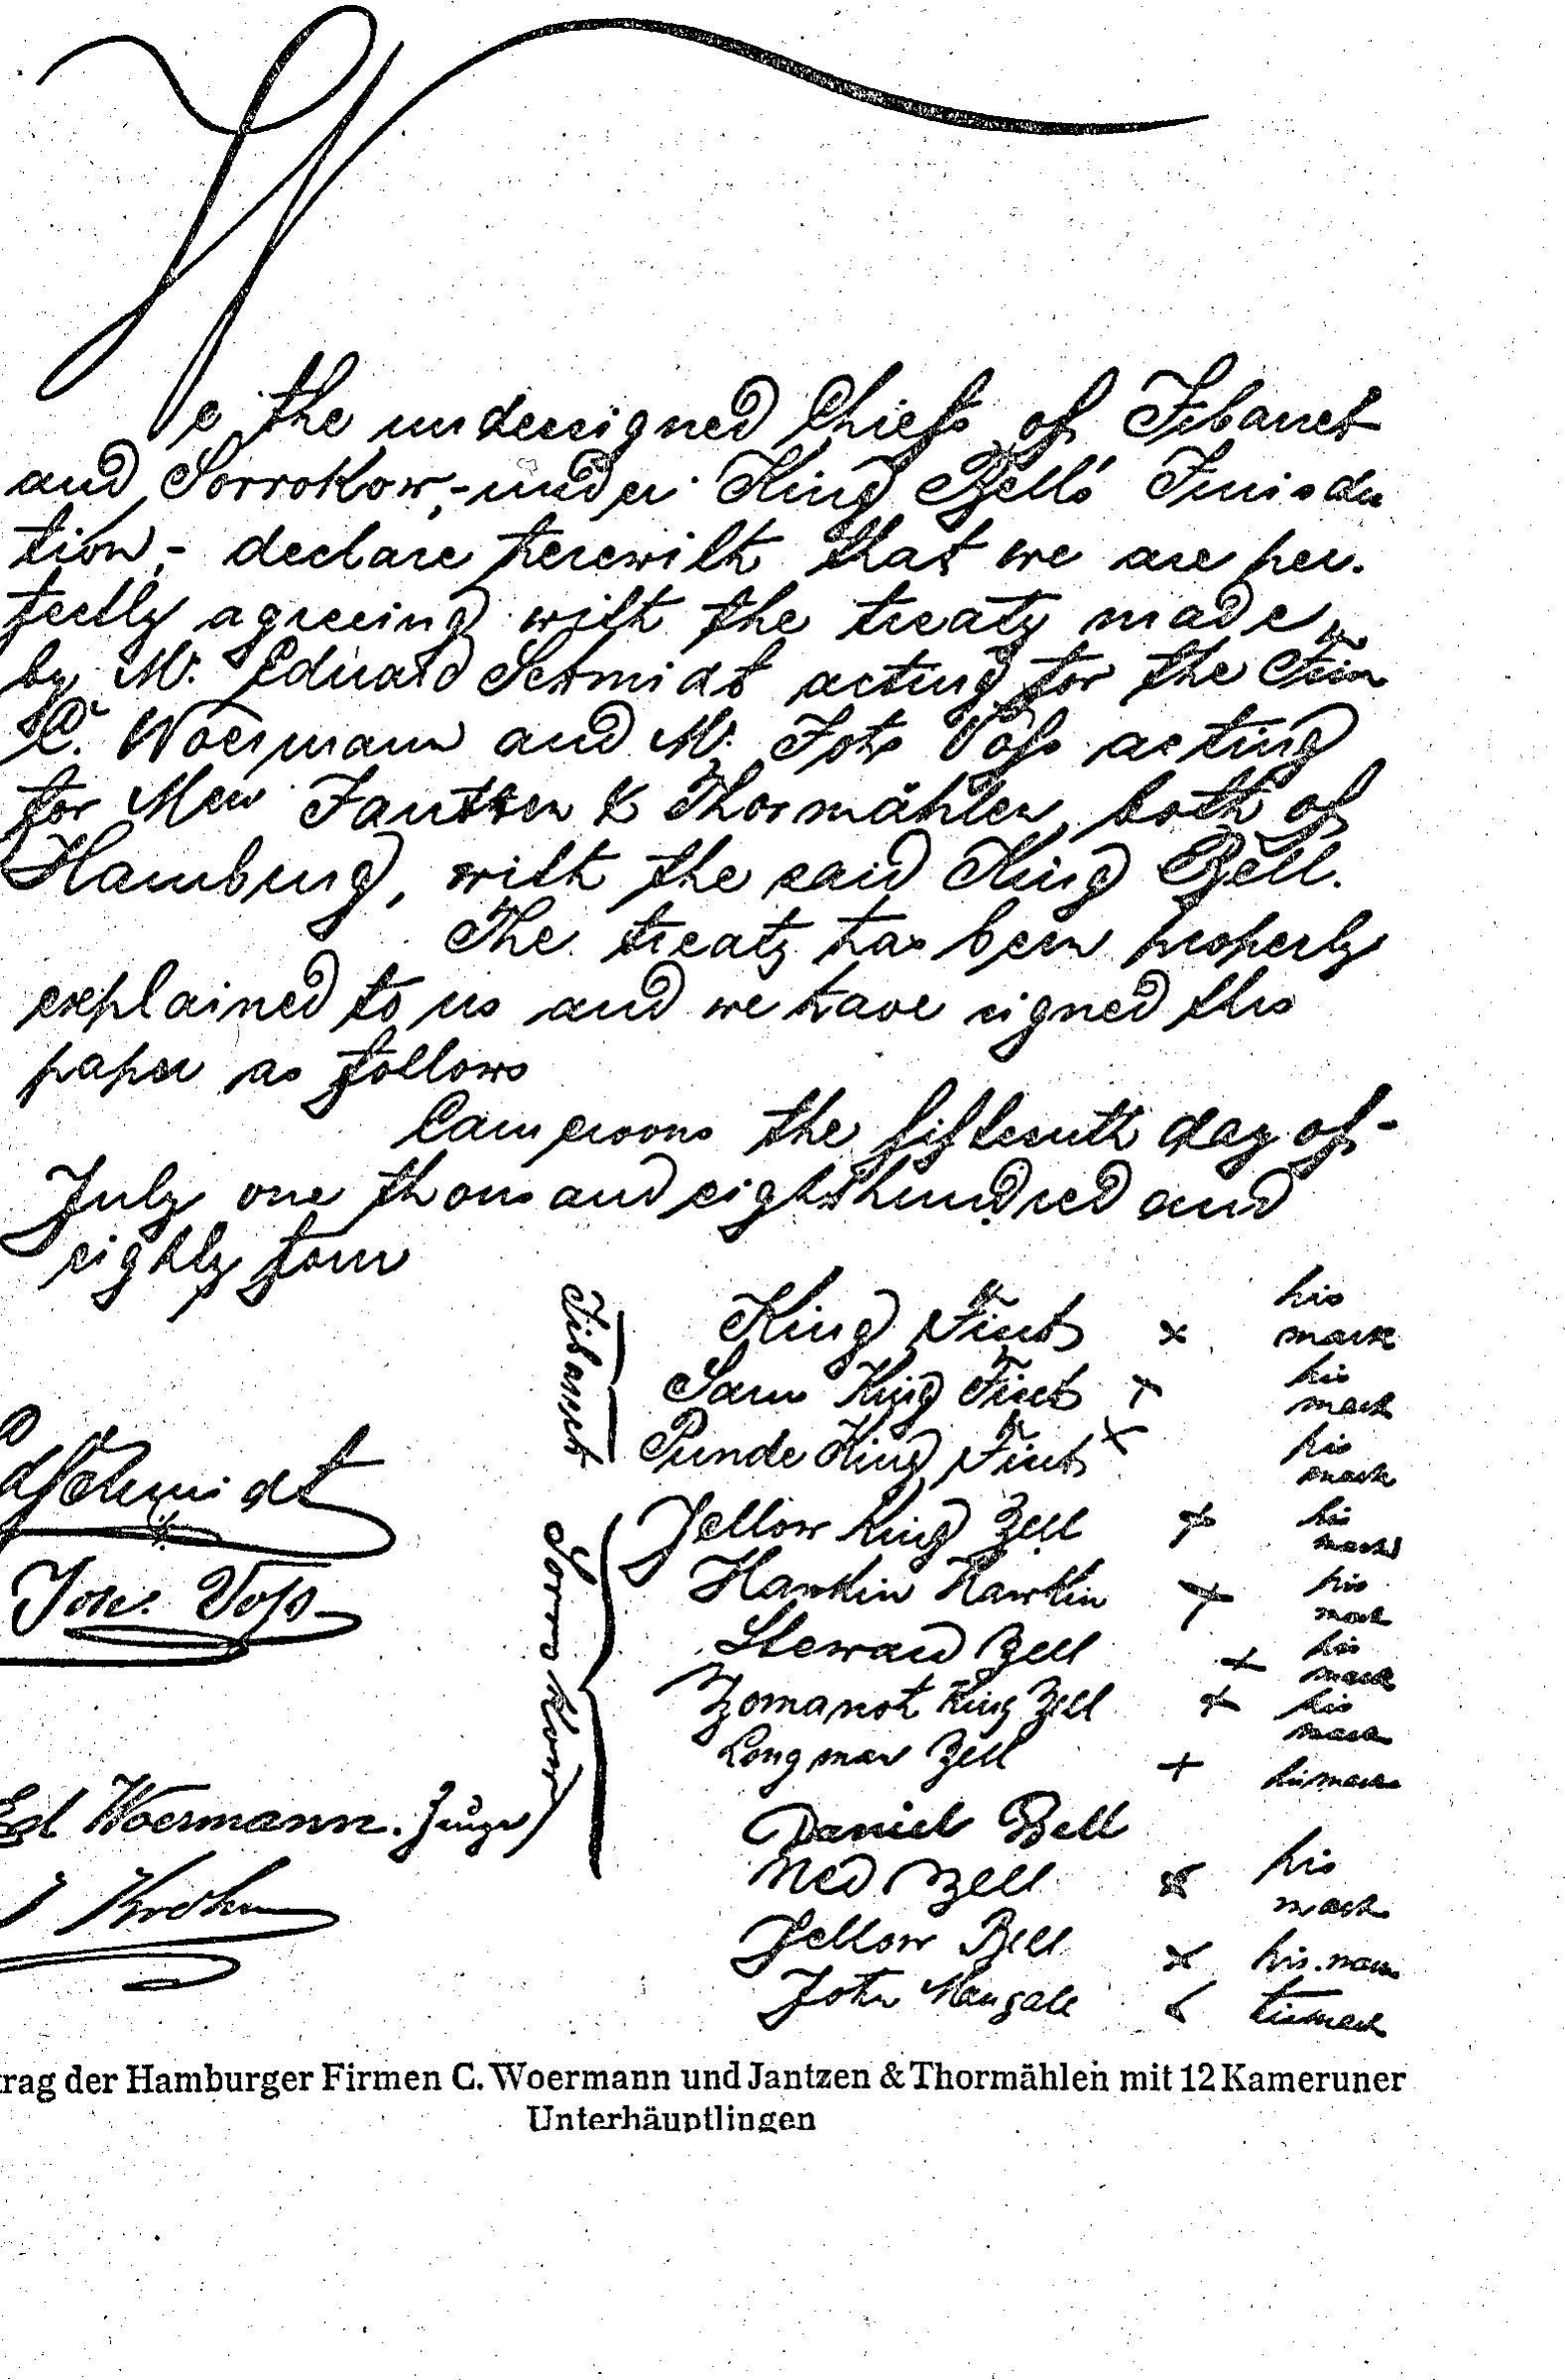 We the undersigned Chiefs of Jibarret
and Sorrokow,- under King Bell's Jurisdic
tion,- declare herewith that we are per-
fectly agreeing with the treaty made
by Mr. Eduard Schmidt acting for the Firm
C. Woermann and Mr. Johs Voss acting
for Jantzen & Thormählen, both of
Hamburg, with the said King Bell.
The treaty has been properly
explained to us and we have signed this
paper as follows
Cameroons the fifteenth day of
July one thousand eighthundred and
eighty four
King × his mark
Sam King × his mark
Punde King × his mark
Yellow King Bell × his mark
Hawkin Hawkin × his mark
Steward Bell × his mark
King Bell × his mark
Longman Bell × his mark
Daniel Bell
Ned Bell × his mark
Yellow Bell × his mark
John × his mark
EdSchmidt
Joh. Voss
Ed Woermann. Zeuge
Krohn
trag der Hamburger Firmen C. Woermann und Jantzen & Thormählen mit 12 Kameruner
Unterhäuptlingen